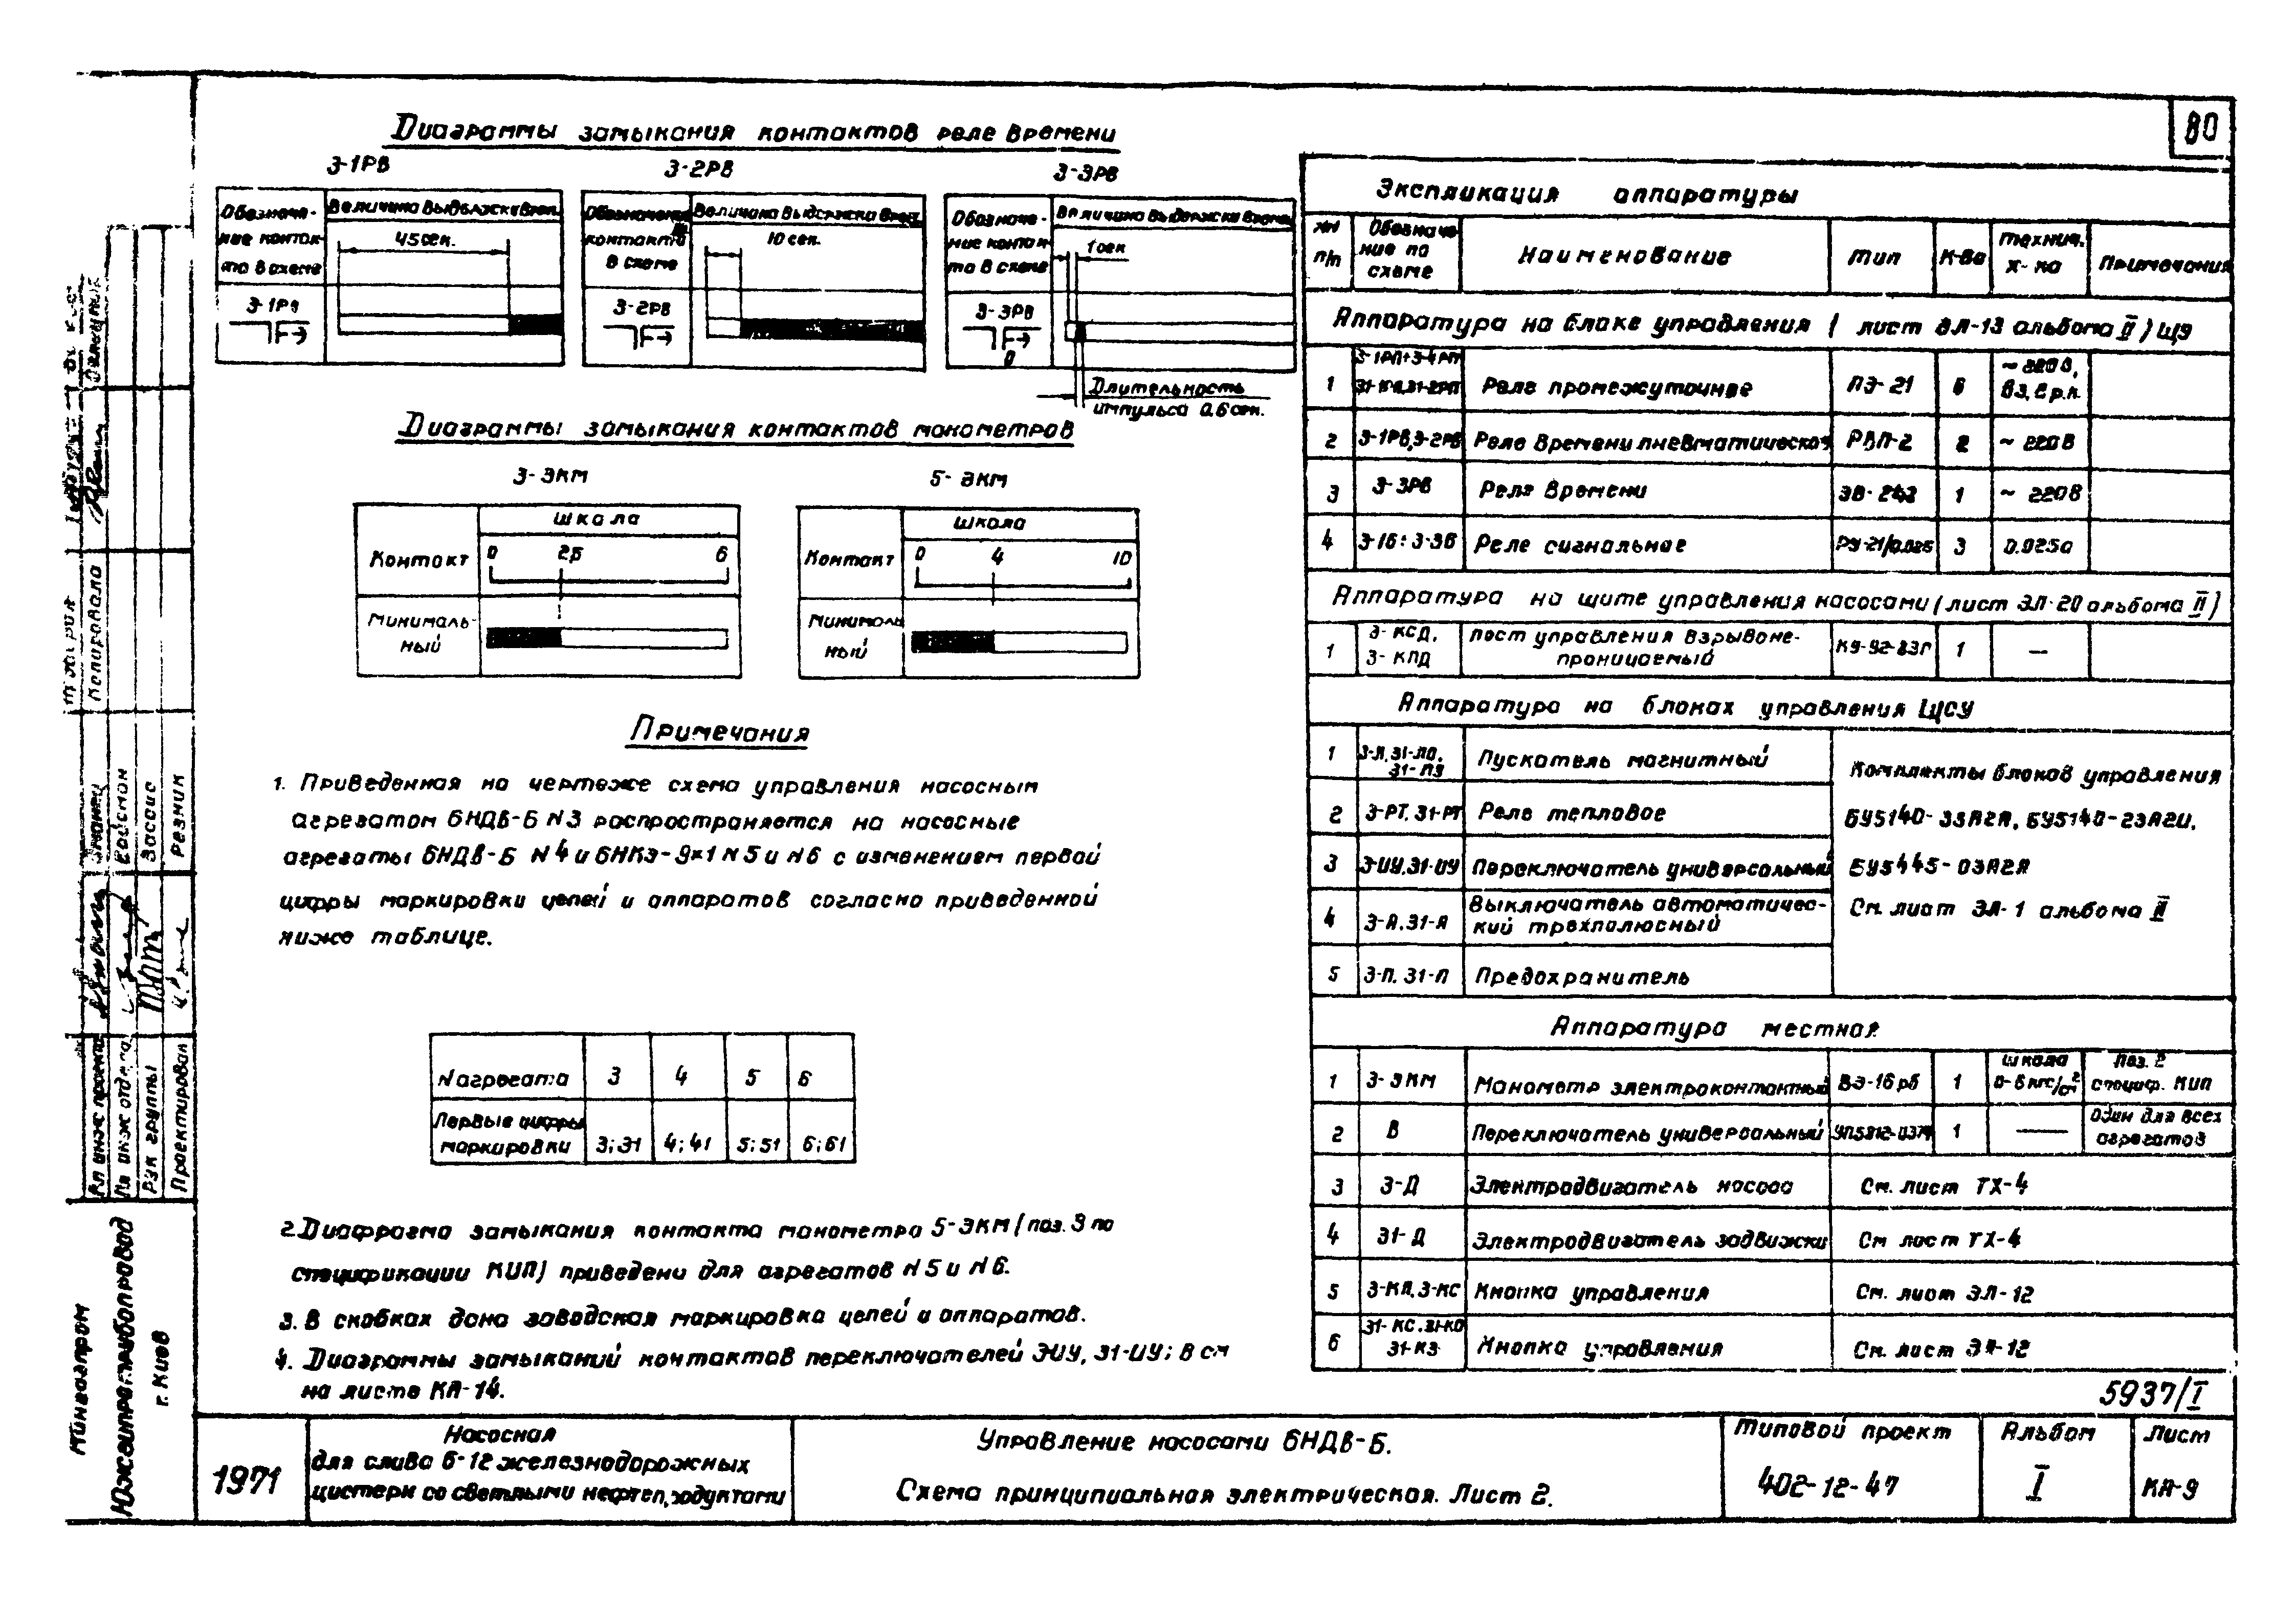 80
Диаграммы замыкания контактов реле времени
3-1РВ
Обозначе-
ние контак-
та в схеме
Величина выдержки врем.
45 сек.
3-1РВ
3-2РВ
Обозначение
контакта
в схеме
Величина выдержки врем.
10 сек.
3-2РВ
3-3РВ
Обозначе-
ние контак-
та в схеме
Величина выдержки времени
1 сек
3-3РВ
Длительность
импульса 0,6 сек.
Диаграммы замыкания контактов манометров
3-ЭКМ
Контакт
Шкала
0 2,5 6
Минималь-
ный
5-ЭКМ
Контакт
Шкала
0 4 10
Минималь
ный
Примечания
1. Приведенная на чертеже схема управления насосным
агрегатом 6НДВ-Б N3 распространяется на насосные
агрегаты 6НДВ-Б N4 и 6НКЭ-9×1 N5 и N6 с изменением первой
цифры маркировки цепей и аппаратов согласно приведенной
ниже таблице.
N агрегата 3 4 5 6
Первые цифры
маркировки 3;31 4;41 5;51 6;61
2. Диафрагма замыкания контакта манометра 5-ЭКМ (поз. 3 по
спецификации КИП) приведена для агрегатов N5 и N6.
3. В скобках дана заводская маркировка цепей и аппаратов.
4. Диаграммы замыканий контактов переключателей 3-ИУ, 31-ИУ; В см
на листе КА-14.
Экспликация аппаратуры
NN
п/п
Обозначе-
ние по
схеме
Наименование
Тип
К-во
Технич.
х-ка
Примечания
Аппаратура на блоке управления (лист ЭЛ-13 альбома II) ЩЭ
1 3-1РП÷3-4РП 31-1РП,31-2РП Реле промежуточное ПЭ-21 6 ~220В, 6з, 2р.к.
2 3-1РВ,3-2РВ Реле времени пневматическое РВП-2 2 ~220В
3 3-3РВ Реле времени ЭВ-242 1 ~220В
4 3-1б÷3-3б Реле сигнальное РУ-21/0.025 3 0.025а
Аппаратура на щите управления насосами (лист ЭЛ-20 альбома II)
1 3-КСД, 3-КПД Пост управления взрывоне-
проницаемый КУ-92-В3Г 1 —
Аппаратура на блоках управления ЩСУ
1 3-Л, 31-ЛО, 31-ПЗ Пускатель магнитный
2 3-РТ, 31-РТ Реле тепловое
3 3-ИУ,31-ИУ Переключатель универсальный
4 3-А,31-А Выключатель автоматичес-
кий трехполюсный
5 3-П, 31-П Предохранитель
Комплекты блоков управления
БУ5140-33А2А, БУ5140-23А2И,
БУ5445-03А2А
См. лист ЭЛ-1 альбома II
Аппаратура местная
1 3-ЭКМ Манометр электроконтактный ВЭ-16рб 1 Шкала 0-6 кгс/см² Поз. 2 специф. КИП
2 В Переключатель универсальный 1 — Один для всех агрегатов
3 3-Д Электродвигатель насоса См. лист ТХ-4
4 31-Д Электродвигатель задвижки См лист ТХ-4
5 3-КП,3-КС Кнопка управления См. лист ЭЛ-12
6 31-КС,31-КО 31-КЗ Кнопка управления См. лист ЭЛ-12
5937/I
1971
Насосная
для слива 6-12 железнодорожных
цистерн со светлыми нефтепродуктами
Управление насосами 6НДВ-Б.
Схема принципиальная электрическая. Лист 2.
Типовой проект
402-12-47
Альбом
I
Лист
КА-9
Мингазпром
Южгипротрубопровод
г. Киев
Гл инж проекта
Гл инж отдела
Рук группы
Проектировал
Ройсман
Зассис
Резник
Копировала